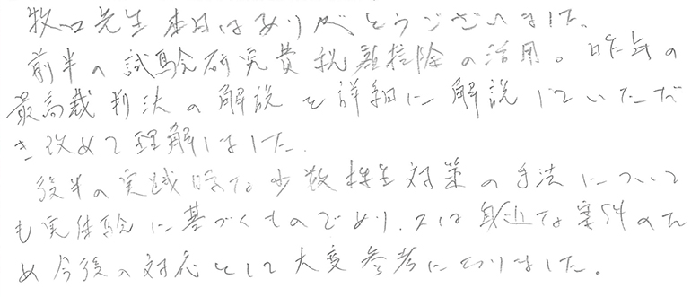 牧口先生 本日はありがとうございました。
前半の試験研究費税額控除の活用。昨年の
最高裁判決の解説を詳細に解説していただ
き改めて理解しました。
後半の実践的な少数株主対策の手法について
も実体験に基づくものであり、身近な案件のた
め今後の対応として大変参考になりました。